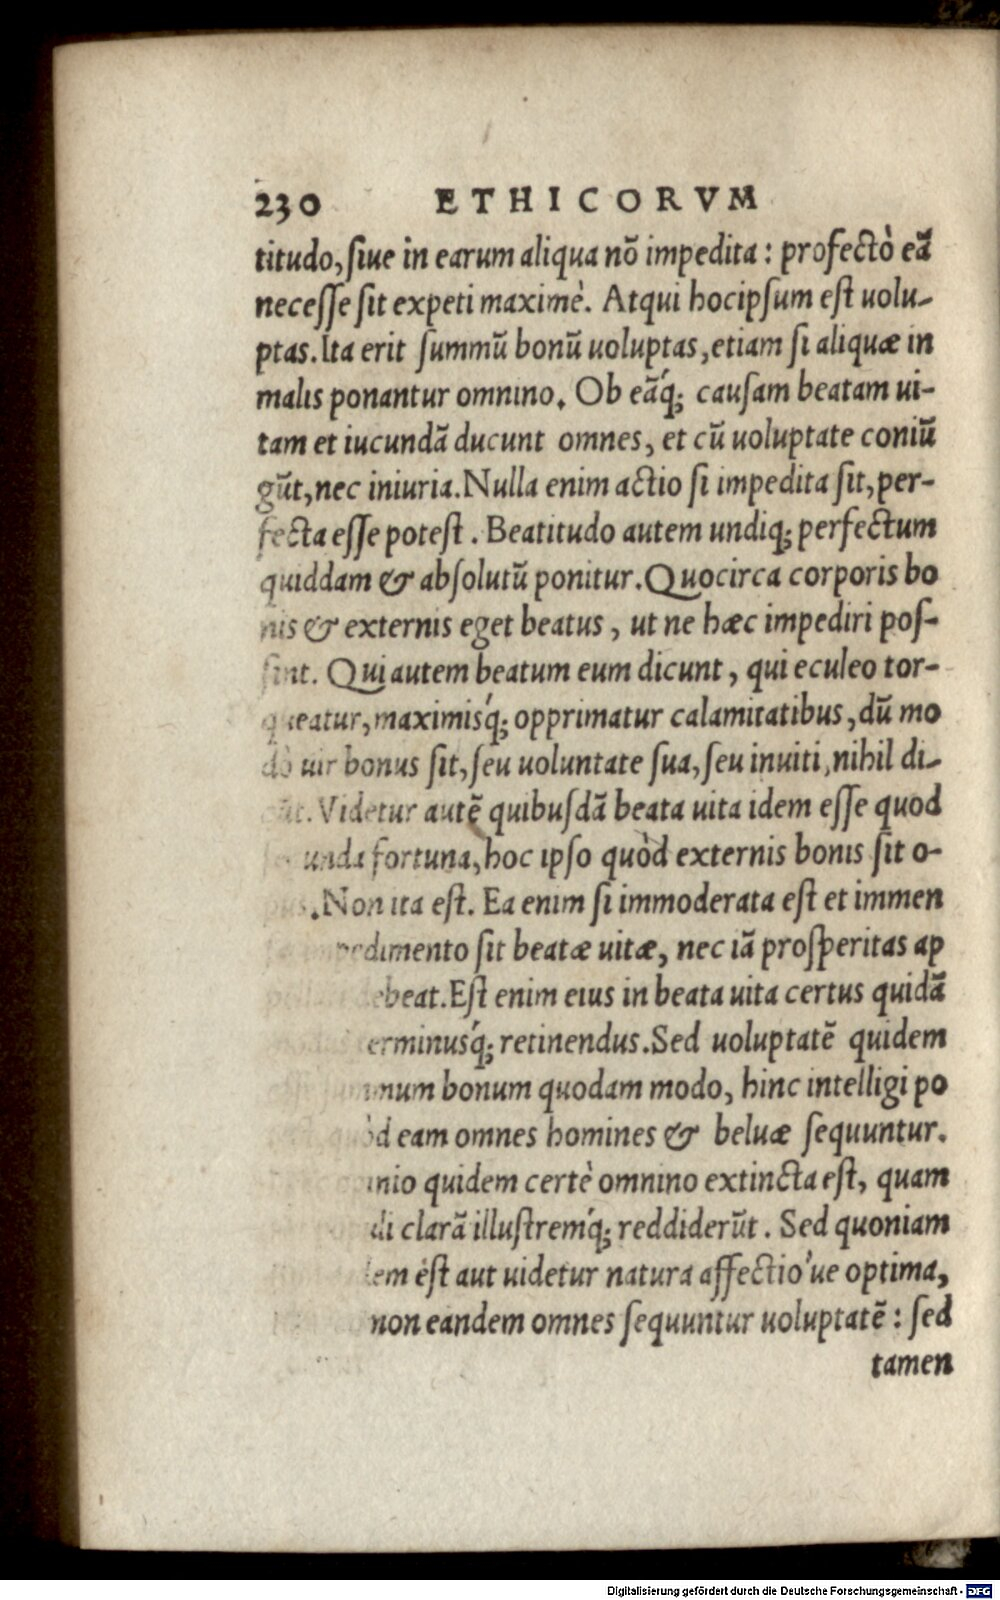 230 ETHICORVM
titudo, siue in earum aliqua nō impedita : profectò eā
necesse sit expeti maximè. Atqui hoc ipsum est uolu-
ptas. Ita erit summū bonū uoluptas, etiam si aliquæ in
malis ponantur omnino. Ob eāq́; causam beatam ui-
tam et iucundā ducunt omnes, et cū uoluptate coniū
gūt, nec iniuria. Nulla enim actio si impedita sit, per-
fecta esse potest. Beatitudo autem undiq; perfectum
quiddam & absolutū ponitur. Quocirca corporis bo
nis & externis eget beatus, ut ne hæc impediri pos-
sint. Qui autem beatum eum dicunt, qui eculeo tor-
queatur, maximisq́; opprimatur calamitatibus, dū mo
dò uir bonus sit, seu uoluntate sua, seu inuiti, nihil di-
cūt. Videtur autē quibusdā beata uita idem esse quod
unda fortuna, hoc ipso quòd externis bonis sit o-
pus. Non ita est. Ea enim si immoderata est et immen
pedimento sit beatæ uitæ, nec iā prosperitas ap
ebeat. Est enim eius in beata uita certus quidā
erminusq́; retinendus. Sed uoluptatē quidem
mum bonum quodam modo, hinc intelligi po
òd eam omnes homines & beluæ sequuntur.
mnio quidem certè omnino extincta est, quam
di clarā illustremq́; reddiderūt. Sed quoniam
dem est aut uidetur natura affectio'ue optima,
non eandem omnes sequuntur uoluptatē : sed
tamen
Digitalisierung gefördert durch die Deutsche Forschungsgemeinschaft - DFG